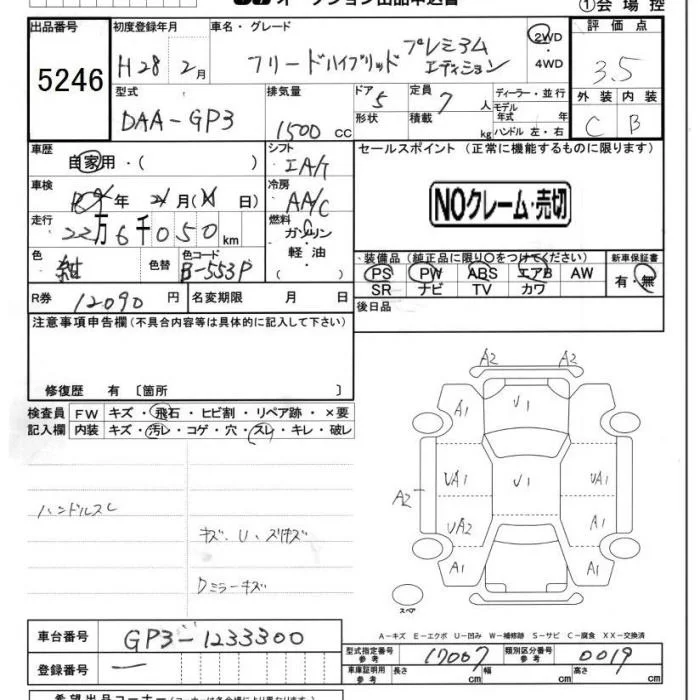 オークション出品申込書
①会場控
出品番号
5246
初度登録年月
H28年 2月
車名・グレード
フリードハイブリッド プレミアムエディション
2WD・4WD
評価点
3.5
型式
DAA-GP3
排気量
1500 CC
ドア 5
形状
定員 7 人
積載 kg
ディーラー・並行
モデル年式 年
ハンドル 左・右
外装 内装
C B
車歴
自家用・( )
シフト
IA/T
セールスポイント(正常に機能するものに限ります)
NOクレーム・売切
車検
年 月( 日)
冷房
AA/C
走行
22万6千050km
燃料
ガソリン
軽油
( )
色
紺
色替
色コード
B-553P
装備品(純正品に限り○をつけてください)
PS PW ABS エアB AW
SR ナビ TV カワ
新車保証書
有・無
R券 12090円
名変期限 月 日
後日品
注意事項申告欄(不具合内容等は具体的に記入して下さい)
修復歴 有 〔箇所 〕
検査員記入欄
FW キズ・飛石・ヒビ割・リペア跡・×要
内装 キズ・汚レ・コゲ・穴・スレ・キレ・破レ
ハンドルスレ
キズ、U、スリキズ
Dミラーキズ
A2 A2
A1 U1
UA1 U1 UA1
A2 UA2 A1
A1 A1
スペア
A-キズ E-エクボ U-凹み W-補修跡 S-サビ C-腐食 XX-交換済
車台番号
GP3-1233300
登録番号
—
型式指定番号 参考 17007
類別区分番号 参考 0019
車庫証明用 参考 長さ cm 幅 cm 高さ cm
希望出品コーナー